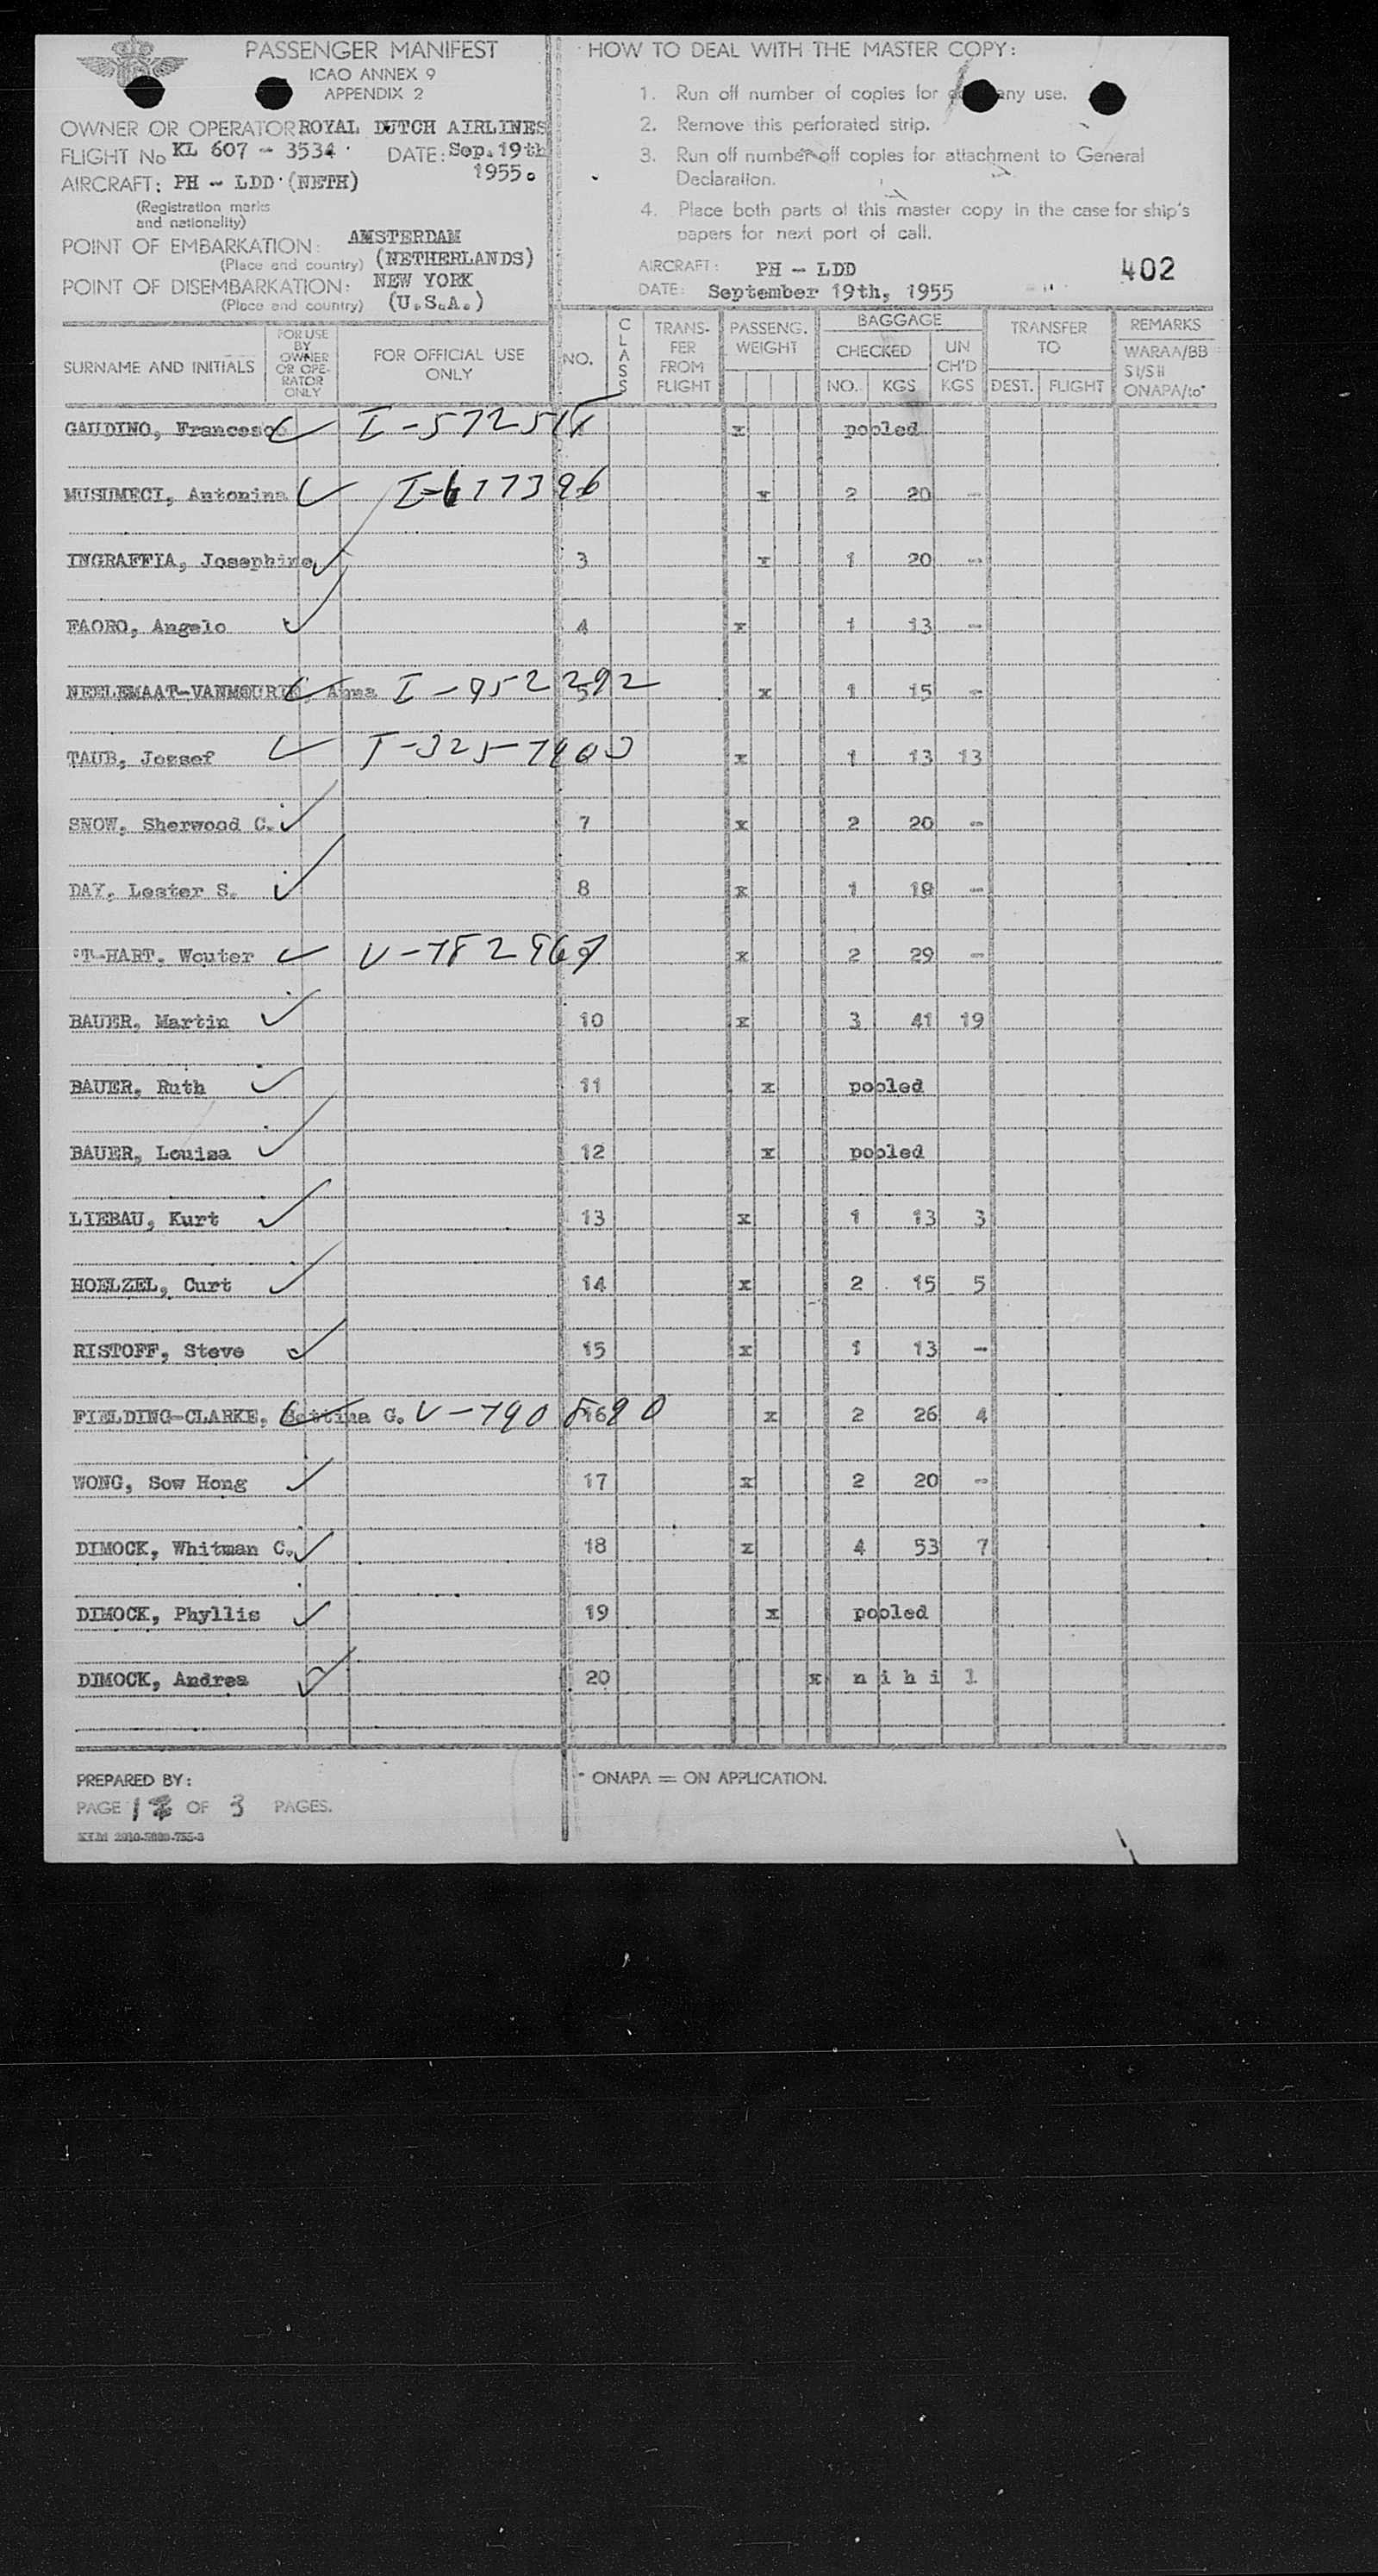 PASSENGER MANIFEST
ICAO ANNEX 9
APPENDIX 2
OWNER OR OPERATOR ROYAL DUTCH AIRLINES
FLIGHT No KL 607 - 3534 DATE: Sep. 19th 1955.
AIRCRAFT: PH - LDD (NETH)
(Registration marks
and nationality)
POINT OF EMBARKATION: AMSTERDAM
(Place and country) (NETHERLANDS)
POINT OF DISEMBARKATION: NEW YORK
(Place and country) (U.S.A.)
HOW TO DEAL WITH THE MASTER COPY:
1. Run off number of copies for any use.
2. Remove this perforated strip.
3. Run off number off copies for attachment to General
Declaration.
4. Place both parts of this master copy in the case for ship's
papers for next port of call.
AIRCRAFT: PH - LDD
402
DATE: September 19th, 1955
SURNAME AND INITIALS
FOR USE BY OWNER OR OPE-RATOR ONLY
FOR OFFICIAL USE ONLY
NO.
CLASS
TRANS-FER FROM FLIGHT
PASSENG. WEIGHT
BAGGAGE
CHECKED
NO. KGS
UN CH'D KGS
TRANSFER TO
DEST. FLIGHT
REMARKS
WARAA/BB
SI/SII
ONAPA/to*
GAUDINO, Francesco x pooled
MUSUMECI, Antonina I-677396 x 2 20 -
INGRAFFIA, Josephine 3 x 1 20 -
FAORO, Angelo 4 x 1 13 -
NEELEMAAT-VANMOURIK, Anna I-952292 5 x 1 15 -
TAUB, Jozsef x 1 13 13
SNOW, Sherwood C. 7 x 2 20 -
DAY, Lester S. 8 x 1 18 -
'T-HART, Wouter 9 x 2 29 -
BAUER, Martin 10 x 3 41 19
BAUER, Ruth 11 x pooled
BAUER, Louisa 12 x pooled
LIEBAU, Kurt 13 x 1 13 3
HOELZEL, Curt 14 x 2 15 5
RISTOFF, Steve 15 x 1 13 -
FIELDING-CLARKE, Bettina G. V-790 890 16 x 2 26 4
WONG, Sow Hong 17 x 2 20 -
DIMOCK, Whitman C. 18 x 4 53 7
DIMOCK, Phyllis 19 x pooled
DIMOCK, Andrea 20 x nihil
PREPARED BY:
* ONAPA = ON APPLICATION.
PAGE 1 OF 3 PAGES.